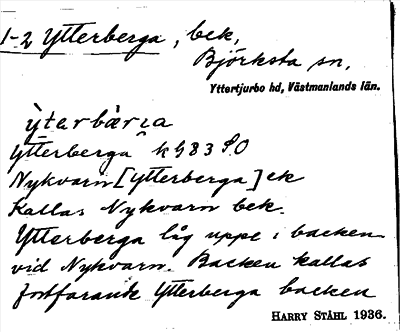 1-2 Ytterberga, bek,
Björksta sn,
Yttertjurbo hd, Västmanlands län.
ỳtarbæ̀rɩa
Ytterberga kg83 SO
Nykvarn [Ytterberga] ek
Kallas Nykvarn bek.
Ytterberga låg uppe i backen
vid Nykvarn. Backen kallas
fortfarande Ytterberga backen
HARRY STÅHL 1936.